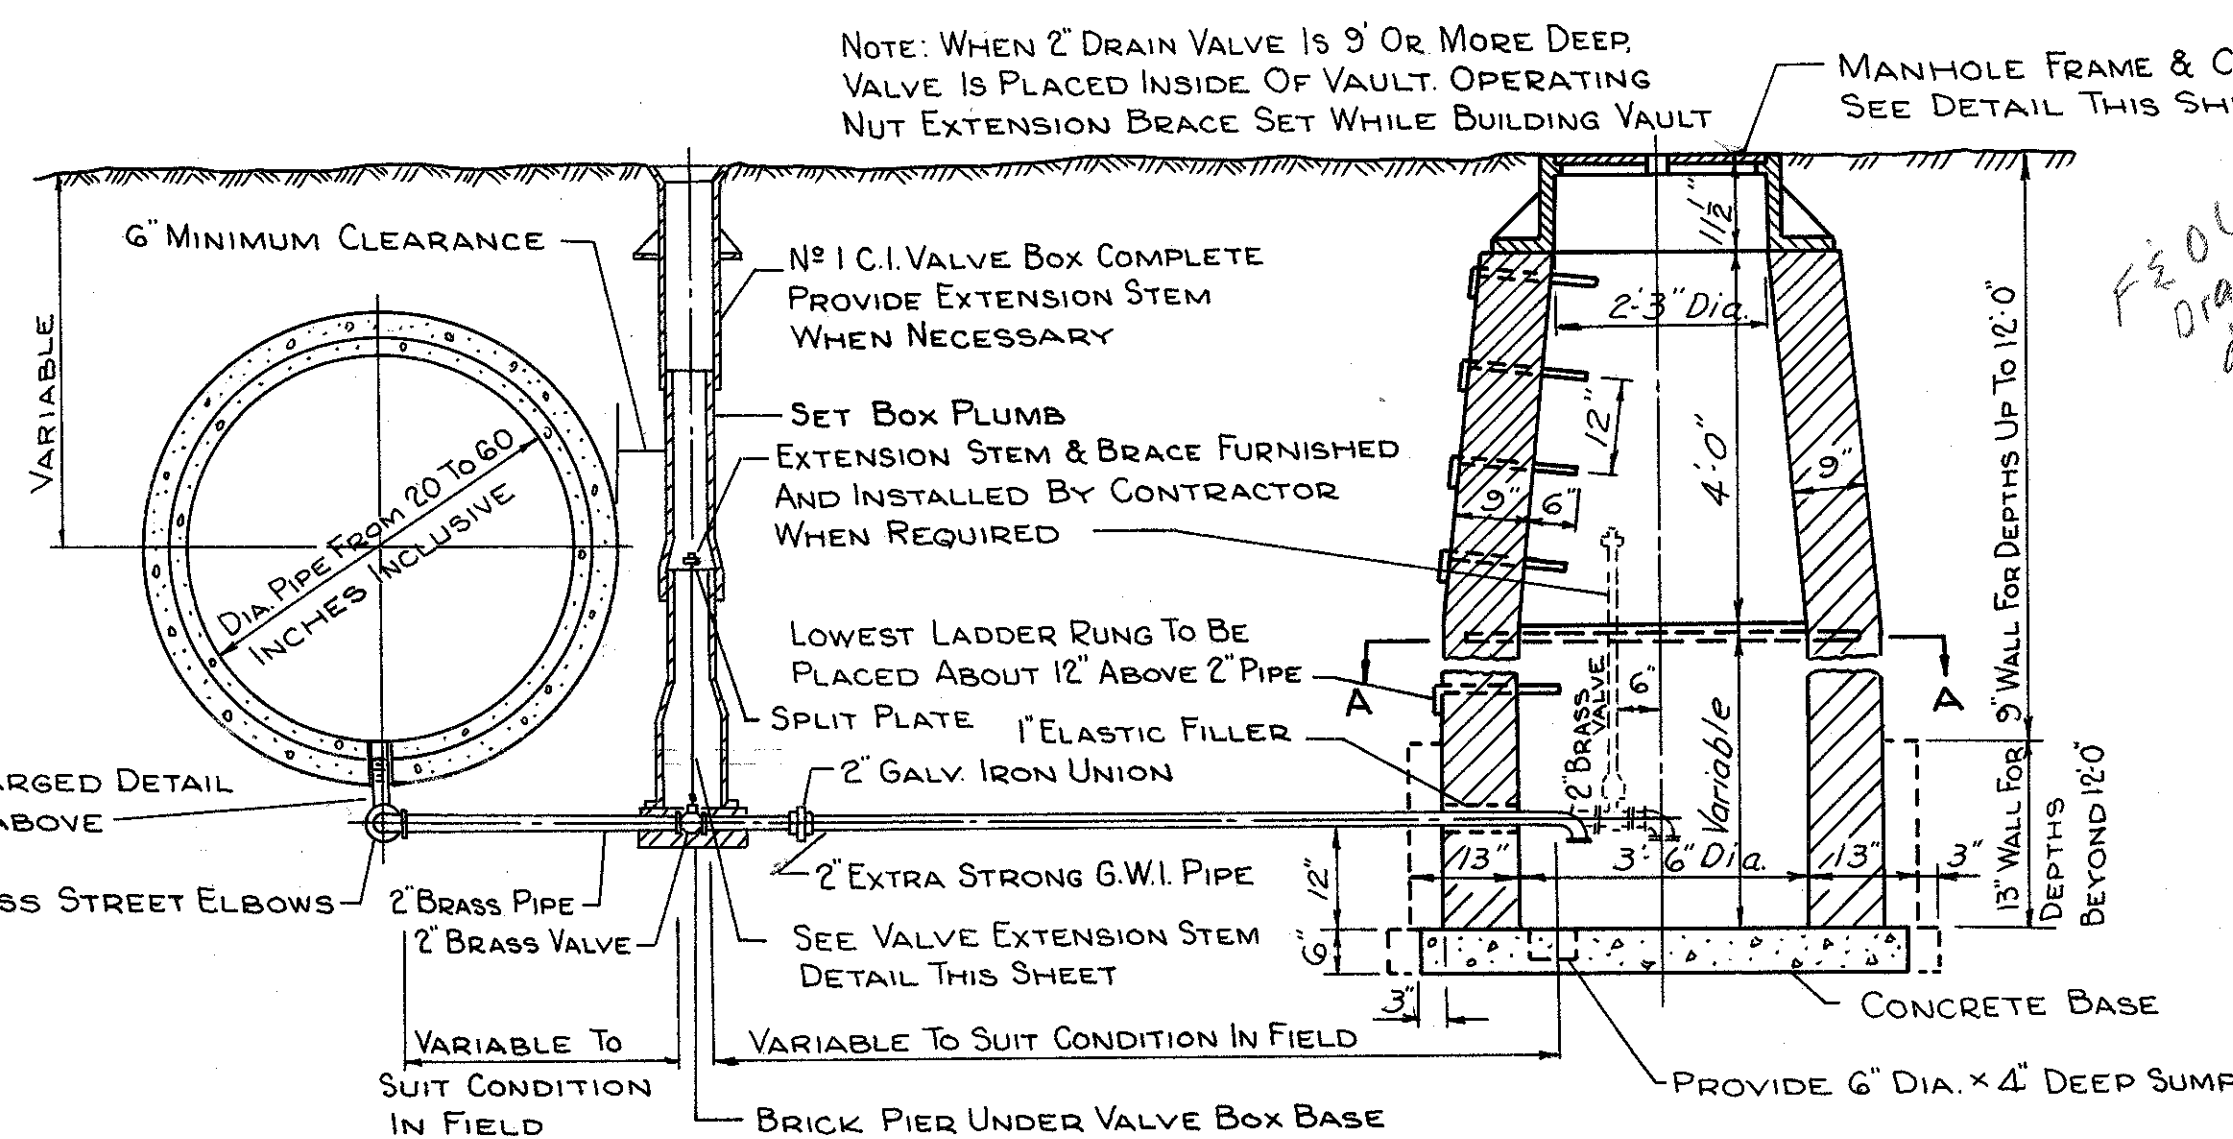 NOTE: WHEN 2" DRAIN VALVE IS 9' OR MORE DEEP,
VALVE IS PLACED INSIDE OF VAULT. OPERATING
NUT EXTENSION BRACE SET WHILE BUILDING VAULT
MANHOLE FRAME &
SEE DETAIL THIS
6" MINIMUM CLEARANCE
VARIABLE
Nº 1 C.I. VALVE BOX COMPLETE
PROVIDE EXTENSION STEM
WHEN NECESSARY
SET BOX PLUMB
EXTENSION STEM & BRACE FURNISHED
AND INSTALLED BY CONTRACTOR
WHEN REQUIRED
DIA. PIPE FROM 20 TO 60
INCHES INCLUSIVE
LOWEST LADDER RUNG TO BE
PLACED ABOUT 12" ABOVE 2" PIPE
SPLIT PLATE
1" ELASTIC FILLER
2" GALV. IRON UNION
DETAIL
ABOVE
STREET ELBOWS
2" BRASS PIPE
2" BRASS VALVE
2" EXTRA STRONG G.W.I. PIPE
SEE VALVE EXTENSION STEM
DETAIL THIS SHEET
VARIABLE TO
SUIT CONDITION
IN FIELD
VARIABLE TO SUIT CONDITION IN FIELD
BRICK PIER UNDER VALVE BOX BASE
11 1/2"
2'-3" Dia.
12"
4'-0"
9"
9"
6"
A
A
2" BRASS
VALVE
6"
Variable
13"
3'-6" Dia.
13"
3"
12"
6"
3"
9" WALL FOR DEPTHS UP TO 12'-0"
13" WALL FOR
DEPTHS
BEYOND 12'-0"
CONCRETE BASE
PROVIDE 6" DIA. × 4" DEEP SUMP